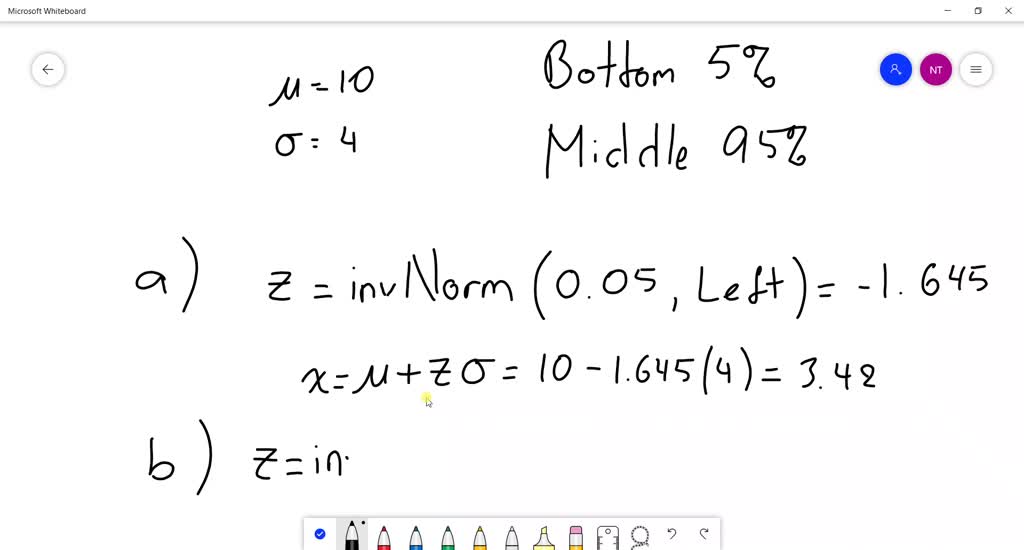 Microsoft Whiteboard
μ = 10
Bottom 5%
σ = 4
Middle 95%
NT
a) z = invNorm (0.05, Left) = -1.645
x = μ + zσ = 10 - 1.645(4) = 3.42
b) z = in